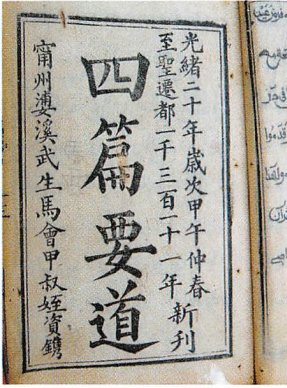 光緒二十年歲次甲午仲春
至聖遷都一千三百一十一年
新刊
四篇要道
甯州婁溪武生馬會甲叔姪資鐫